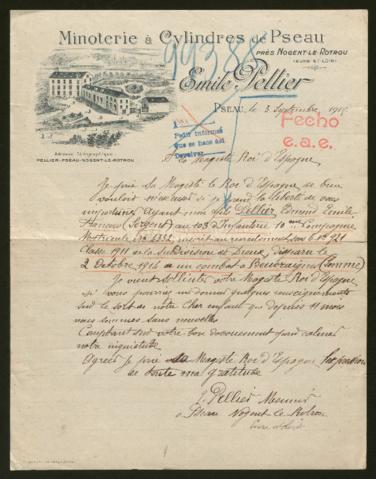 Minoterie à Cylindres de Pseau
PRÈS NOGENT-LE-ROTROU
(EURE-ET-LOIR)
99388
Emile Pellier
PSEAU, le 3 Septembre 191
Fecho
e.a.e.
Pedir informes
que se hace así
Adresse Télégraphique
PELLIER-PSEAU-NOGENT-LE-ROTROU
Sa Majesté Roi d'Espagne
Je prie Sa Majesté le Roi d'Espagne de bien
vouloir m'excuser si je prends la liberté de vous
importuner. Ayant mon fils Pellier, Edmond Emile
(Sergent) au 103 d'Infanterie 10me Compagnie
Matricule inscrit au recrutement sous le No 921
Classe 1911 de la Subdivision de Dreux, disparu le
2 Octobre 1914 au combat à Beuvraignes (Somme)
Je viens solliciter Majesté Roi d'Espagne
si vous pouvez me donner quelque renseignements
sur le sort de notre Cher enfant que depuis 11 mois
nous sommes sans nouvelles.
Comptant sur votre bon dévouement pour calmer
notre inquiétude
Agréez je prie Sa Majesté Roi d'Espagne l'expression
de toute ma gratitude
E. Pellier Meunier
à Pseau Nogent le Rotrou
Eure et Loir